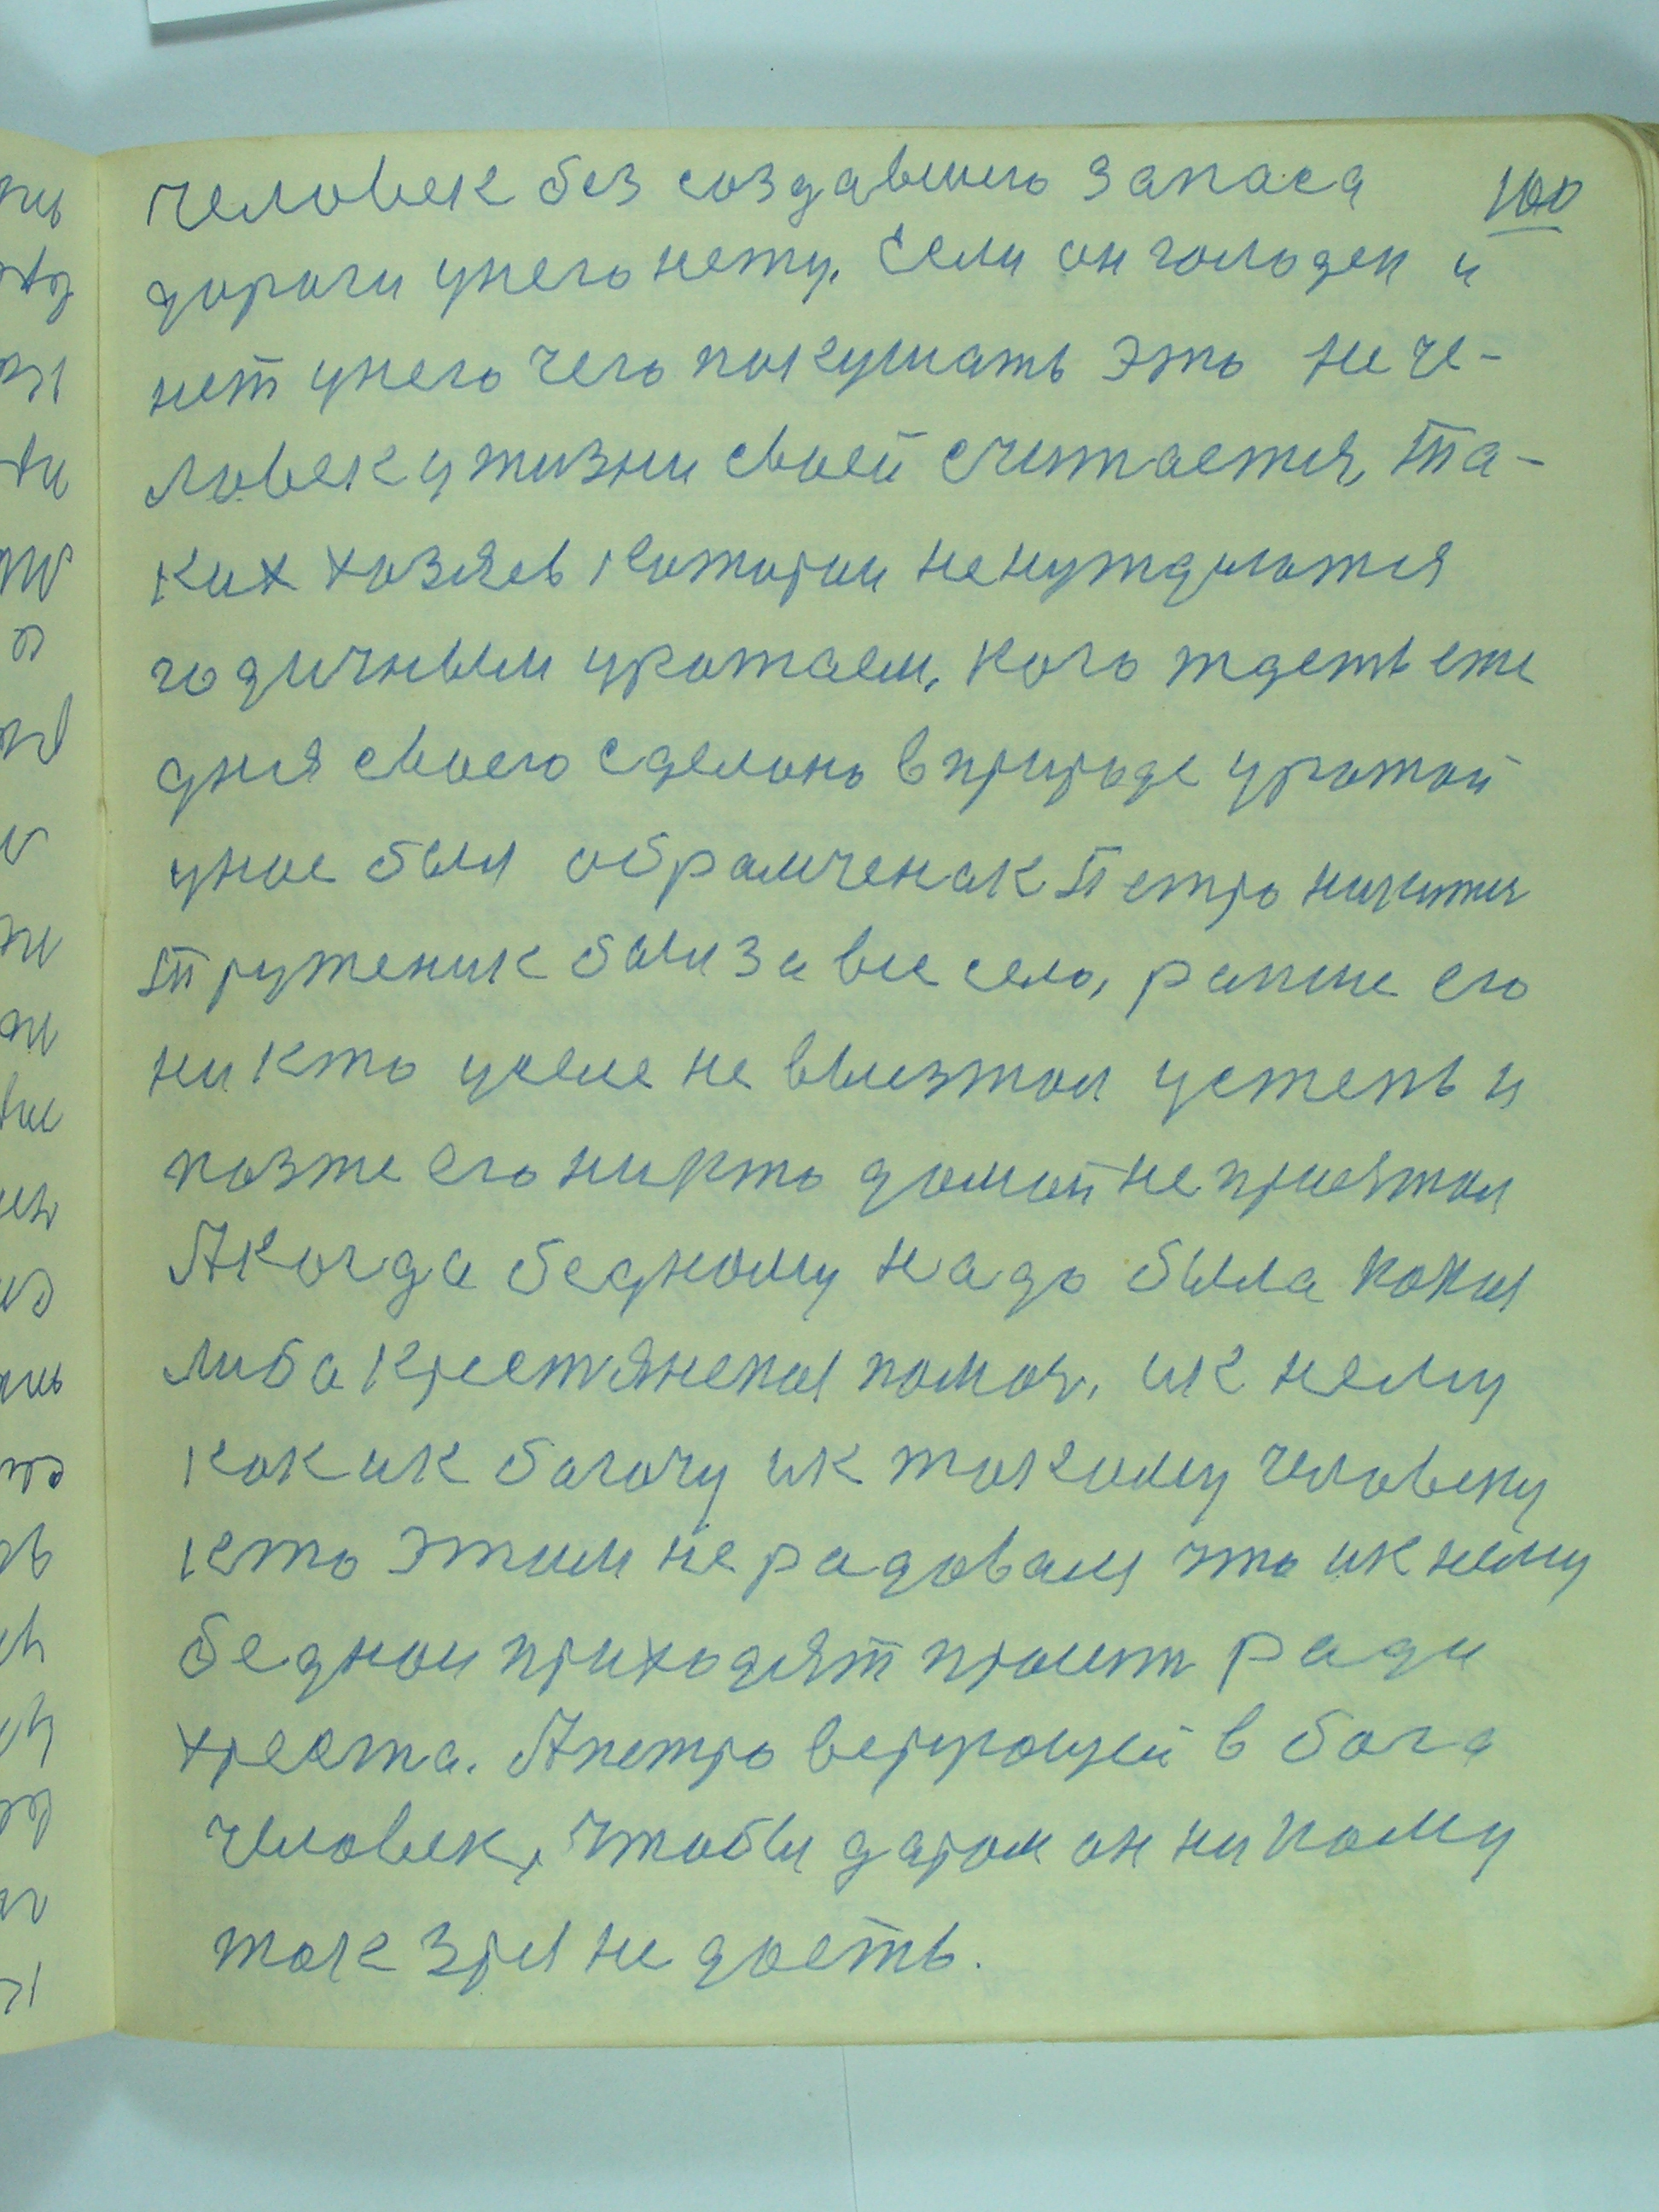 человек без создавшего запаса 100
дороги унего нету. Если он голоден и
нет унего чего покушать это не че-
ловек у жизни своей считается, Та-
ких хозяев которои ненуждаются
годичным урожаем, кого ждеть еже
дня своего сделано в природе урожай
унас был обрамченак Петро никитич
Труженик был за все село, ранше его
ни кто уселе не выезжал устепь и
позже его никто домой не приезжал
А когда бедному надо была какая
либа крестьянская помоч, ик нему
как ик богачу ик такому человеку
кто этим не радовался что ик нему
беднои приходят просит ради
хреста. А петро верующей в бога
человек, чтобы даром он ни кому
так зря не дасть.